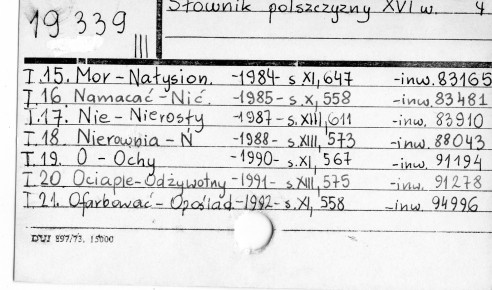 Słownik polszczyzny XVI w. 4
19 339 III
T.15. Mor – Natysion. -1984- s. XI, 647 -inw. 83165
T.16 Namacać – Nić. -1985- s. X, 558 -inw. 83481
T.17. Nie – Nierosty -1987- s. XIII, 611 -inw. 83910
T.18 Nierownia – Ń -1988- s. XIII, 573 -inw. 88043
T.19. O – Ochy -1990- s. XI, 567 -inw. 91194
T.20 Ociaple – Odżywotny -1991- s. XIII, 575 -inw. 91278
T.21. Ofarbować – Opośiad -1992- s. XI, 558 -inw. 94996
DUJ 897/73. 15000